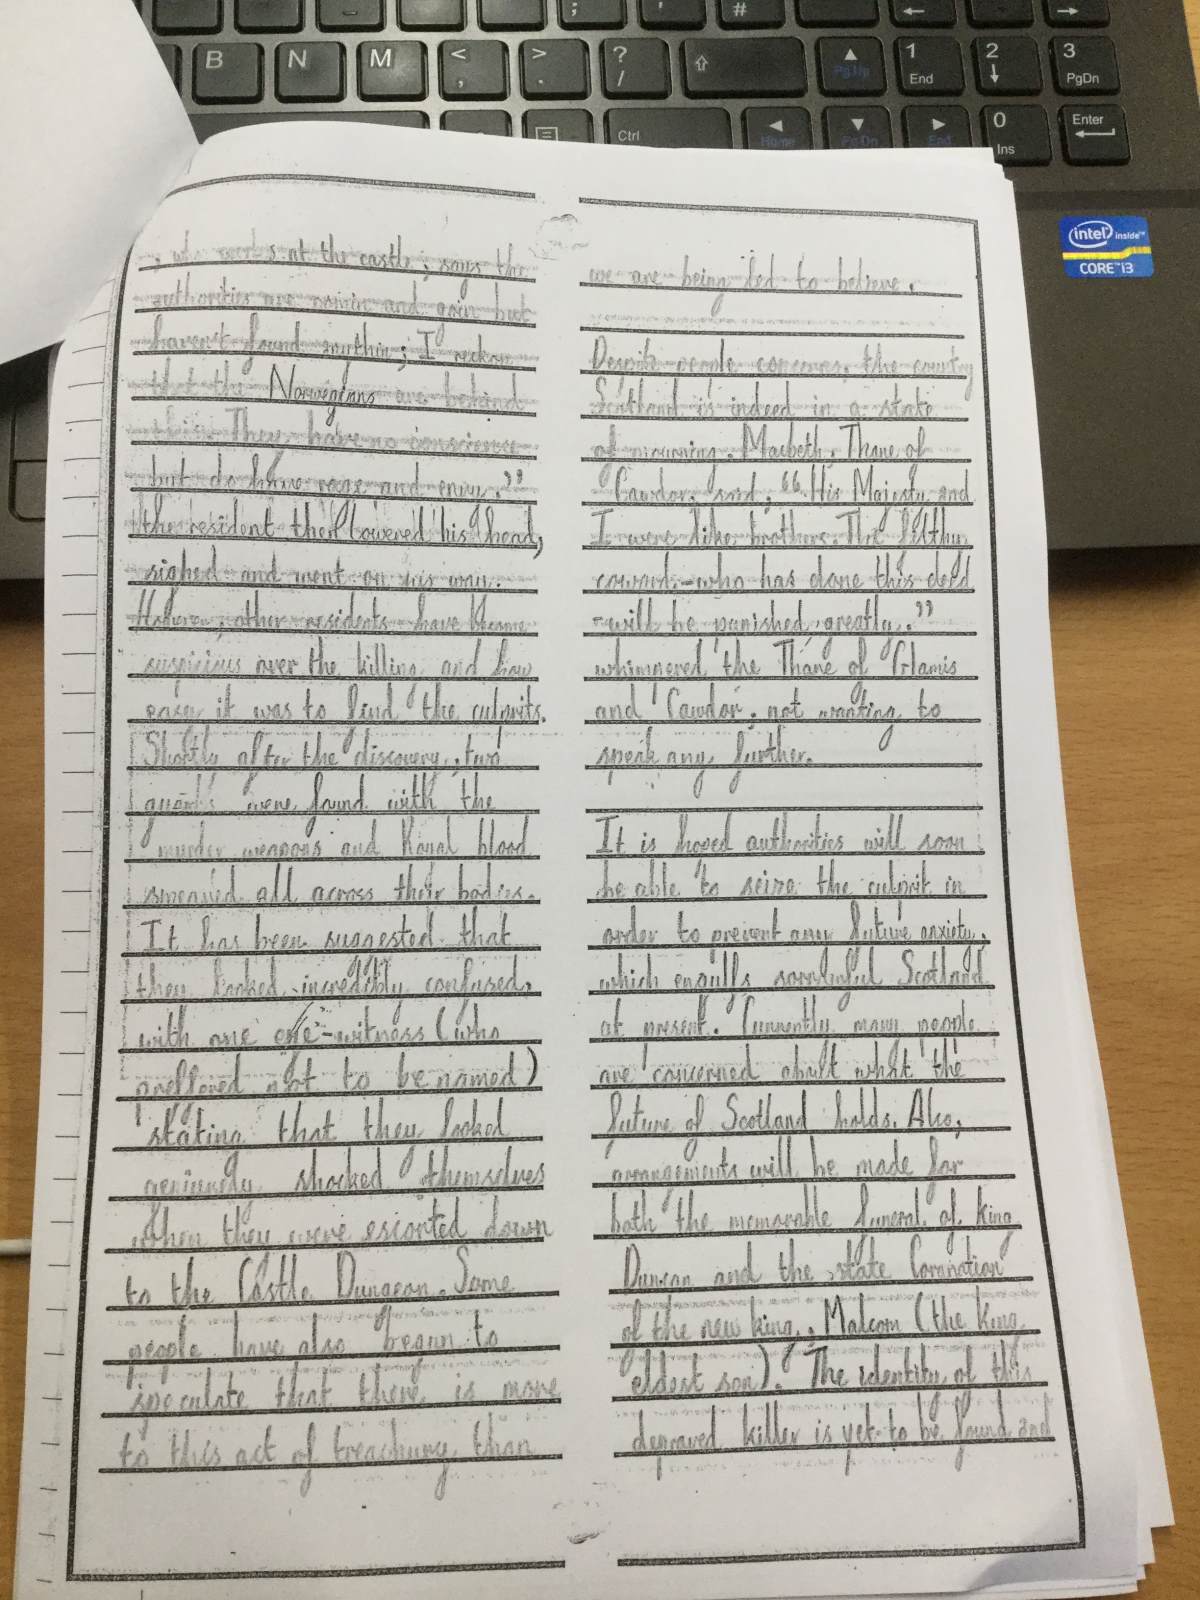 B N M < , > . ? / ⇧ ▲ PgUp 1 End 2 ↓ 3 PgDn
; ' # ← →
Ctrl ◄ Home ▼ PgDn ► End 0 Ins Enter
intel inside™
CORE™ i3
, who works at the castle, says the
authorities are comin and goin but
haven't found anythin; I reckon
that the Norwegians are behind
this. They have no conscience
but do have rage and envy.”
the resident then lowered his head,
sighed and went on his way.
However, other residents have become
suspicious over the killing and how
easy it was to find the culprits.
Shortly after the discovery, two
guards were found with the
murder weapons and Royal blood
smeared all across their bodies.
It has been suggested that
they looked incredibly confused,
with one eye-witness (who
preffered not to be named)
stating that they looked
genuinely shocked themselves
when they were escorted down
to the Castle Dungeon. Some
people have also began to
speculate that there is more
to this act of treachury than
we are being led to believe.
Despite people concerns, the country
Scotland is indeed in a state
of mourning. Macbeth, Thane of
Cawdor, said, “His Majesty and
I were like brothers. The filthy
coward - who has done this deed
- will be punished greatly.”
whimpered the Thane of Glamis
and Cawdor, not wanting to
speak any further.
It is hoped authorities will soon
be able to seize the culprit in
order to prevent any future anxiety,
which engulfs Scotland
at present. Currently many people
are concerned about what the
future of Scotland holds. Also,
arrangements will be made for
both the memorable funeral of king
Duncan and the state Coronation
of the new king, Malcom (the King
eldest son). The identity of this
depraved killer is yet to be found and